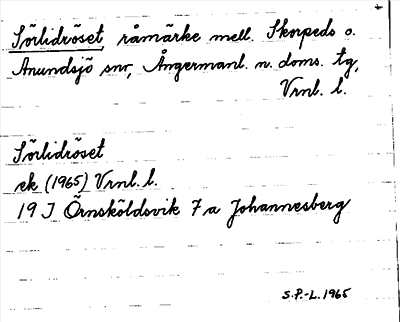 Sörlidröset, råmärke mell. Skorpeds o.
Anundsjö snr, Ångermanl. n. doms. tg,
Vrnl. l.
Sörlidröset
ek (1965) Vrnl. l.
19 J Örnsköldsvik 7 a Johannesberg
S.P.-L. 1965